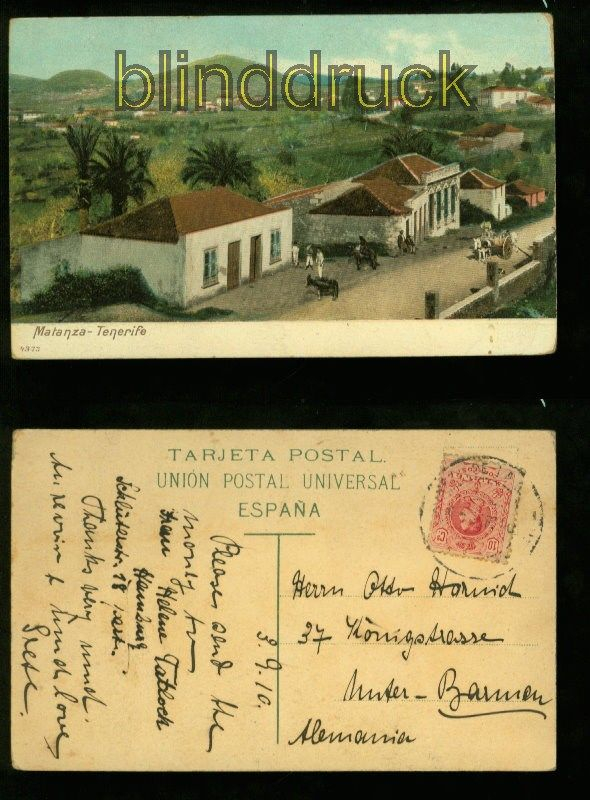 blinddruck
Matanza-Tenerife
4373
TARJETA POSTAL.
UNIÓN POSTAL UNIVERSAL
ESPAÑA
3.9.10.
Please send the
money to
Frau Helene Tatlock
Hamburg
18
Thanks very much.
Au revoir & kind love
Herrn Otto Hornich
37 Königstrasse
Unter-Barmen
Alemania